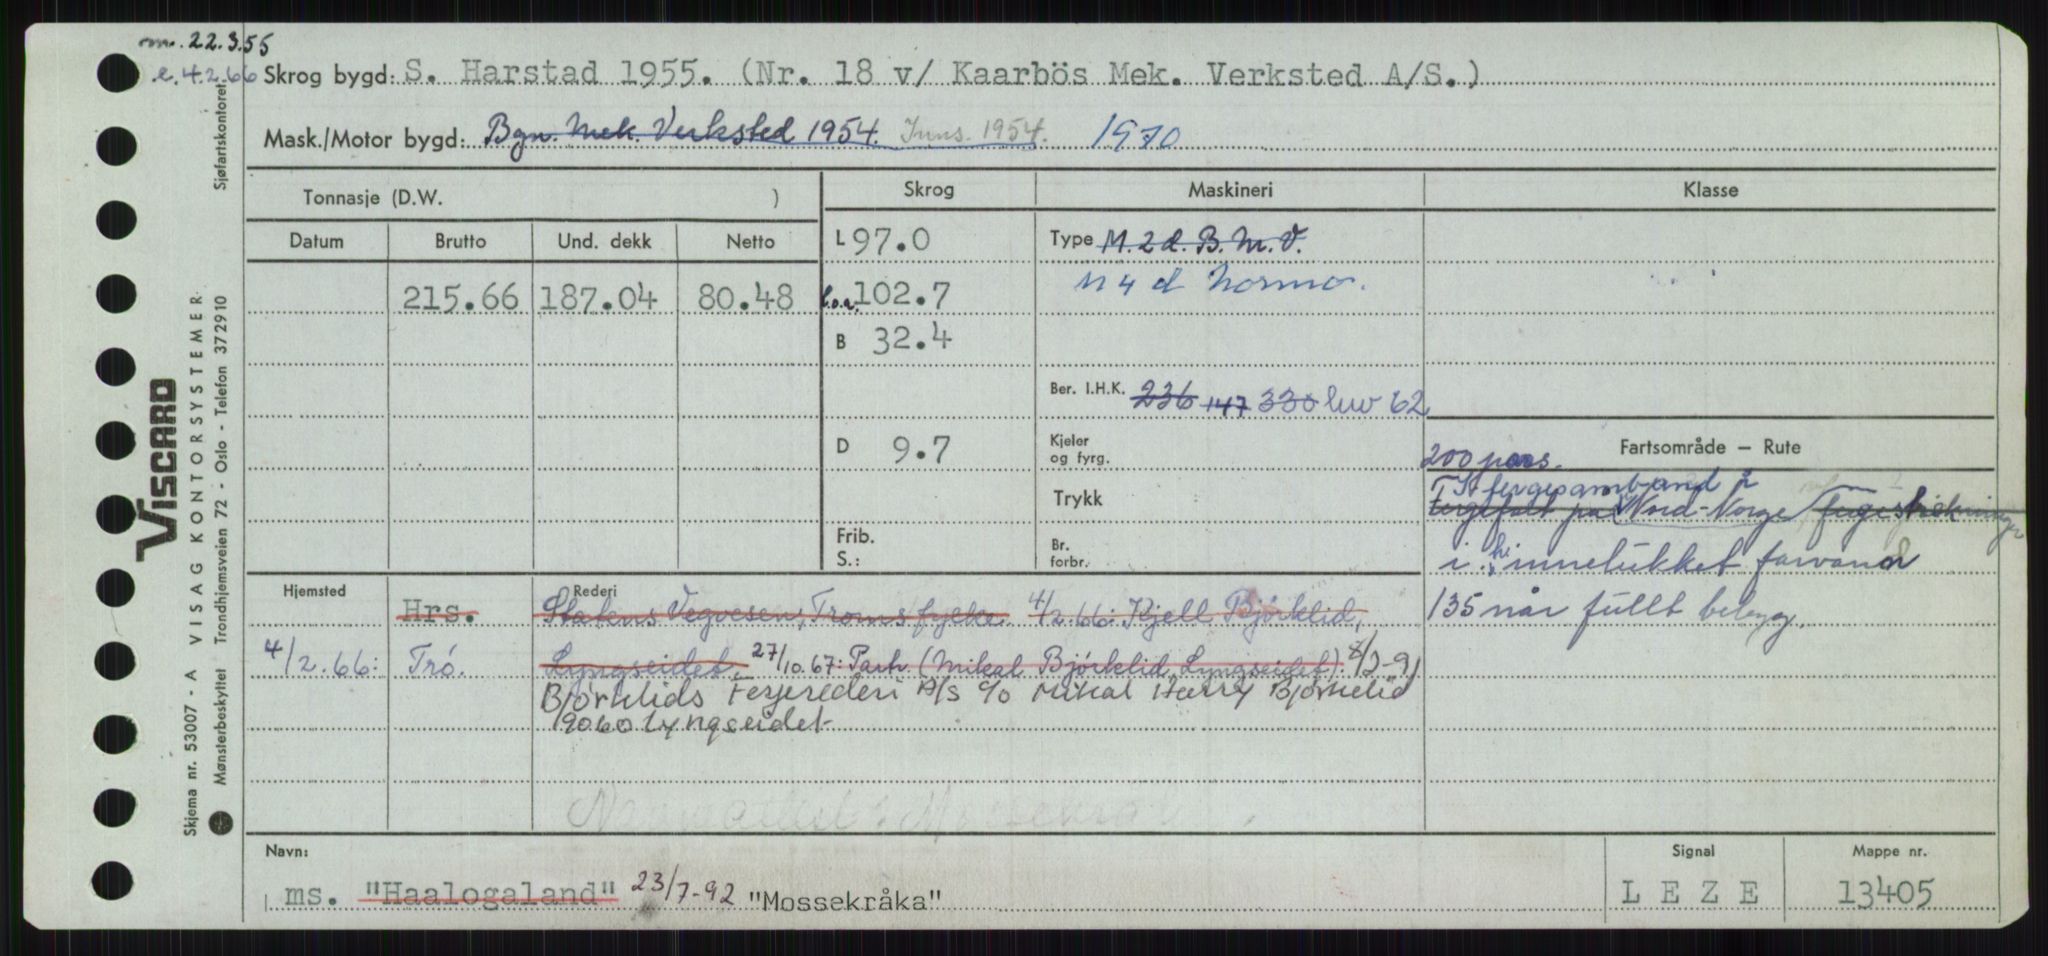 m. 22.3.55
e. 4.2.66
Skrog bygd: S. Harstad 1955. (Nr. 18 v/ Kaarbös Mek. Verksted A/S.)
Mask./Motor bygd: Bgn. Mek. Verksted 1954. Inns. 1954. 1970
Tonnasje (D.W. )
Skrog Maskineri Klasse
Datum Brutto Und. dekk Netto
L 97.0 Type M. 2 d. B.M.V.
M 4 d Normo.
215.66 187.04 80.48 l.o.a. 102.7
B 32.4
Ber. I.H.K. 236 147 330 62
D 9.7 Kjeler og fyrg.
Fartsområde – Rute
200 pass.
Trykk
I fergesamband i
Fergefart på Nord-Norge
Frib.
S.:
Br. forbr.
i innelukket farvand
135 når fullt belyg.
Hjemsted Rederi
Hrs. Statens Vegvesen, Troms fylke. 4/2.66: Kjell Bjørklid,
4/2.66: Trö. Lyngseidet. 27/10.67: Partr. (Mikal Bjørklid, Lyngseidet). 8/2-91
Bjørklids Ferjerederi A/S c/o Mikal Harry Bjørkelid
9060 Lyngseidet
Navn:
ms. "Haalogaland" 23/7-92 "Mossekråka"
Signal
L E Z E
Mappe nr.
13405
Sjøfartskontoret
VISCARD
Skjema nr. 53007 - A VISAG KONTORSYSTEMER
Mønsterbeskyttet Trondhjemsveien 72 - Oslo - Telefon 372910